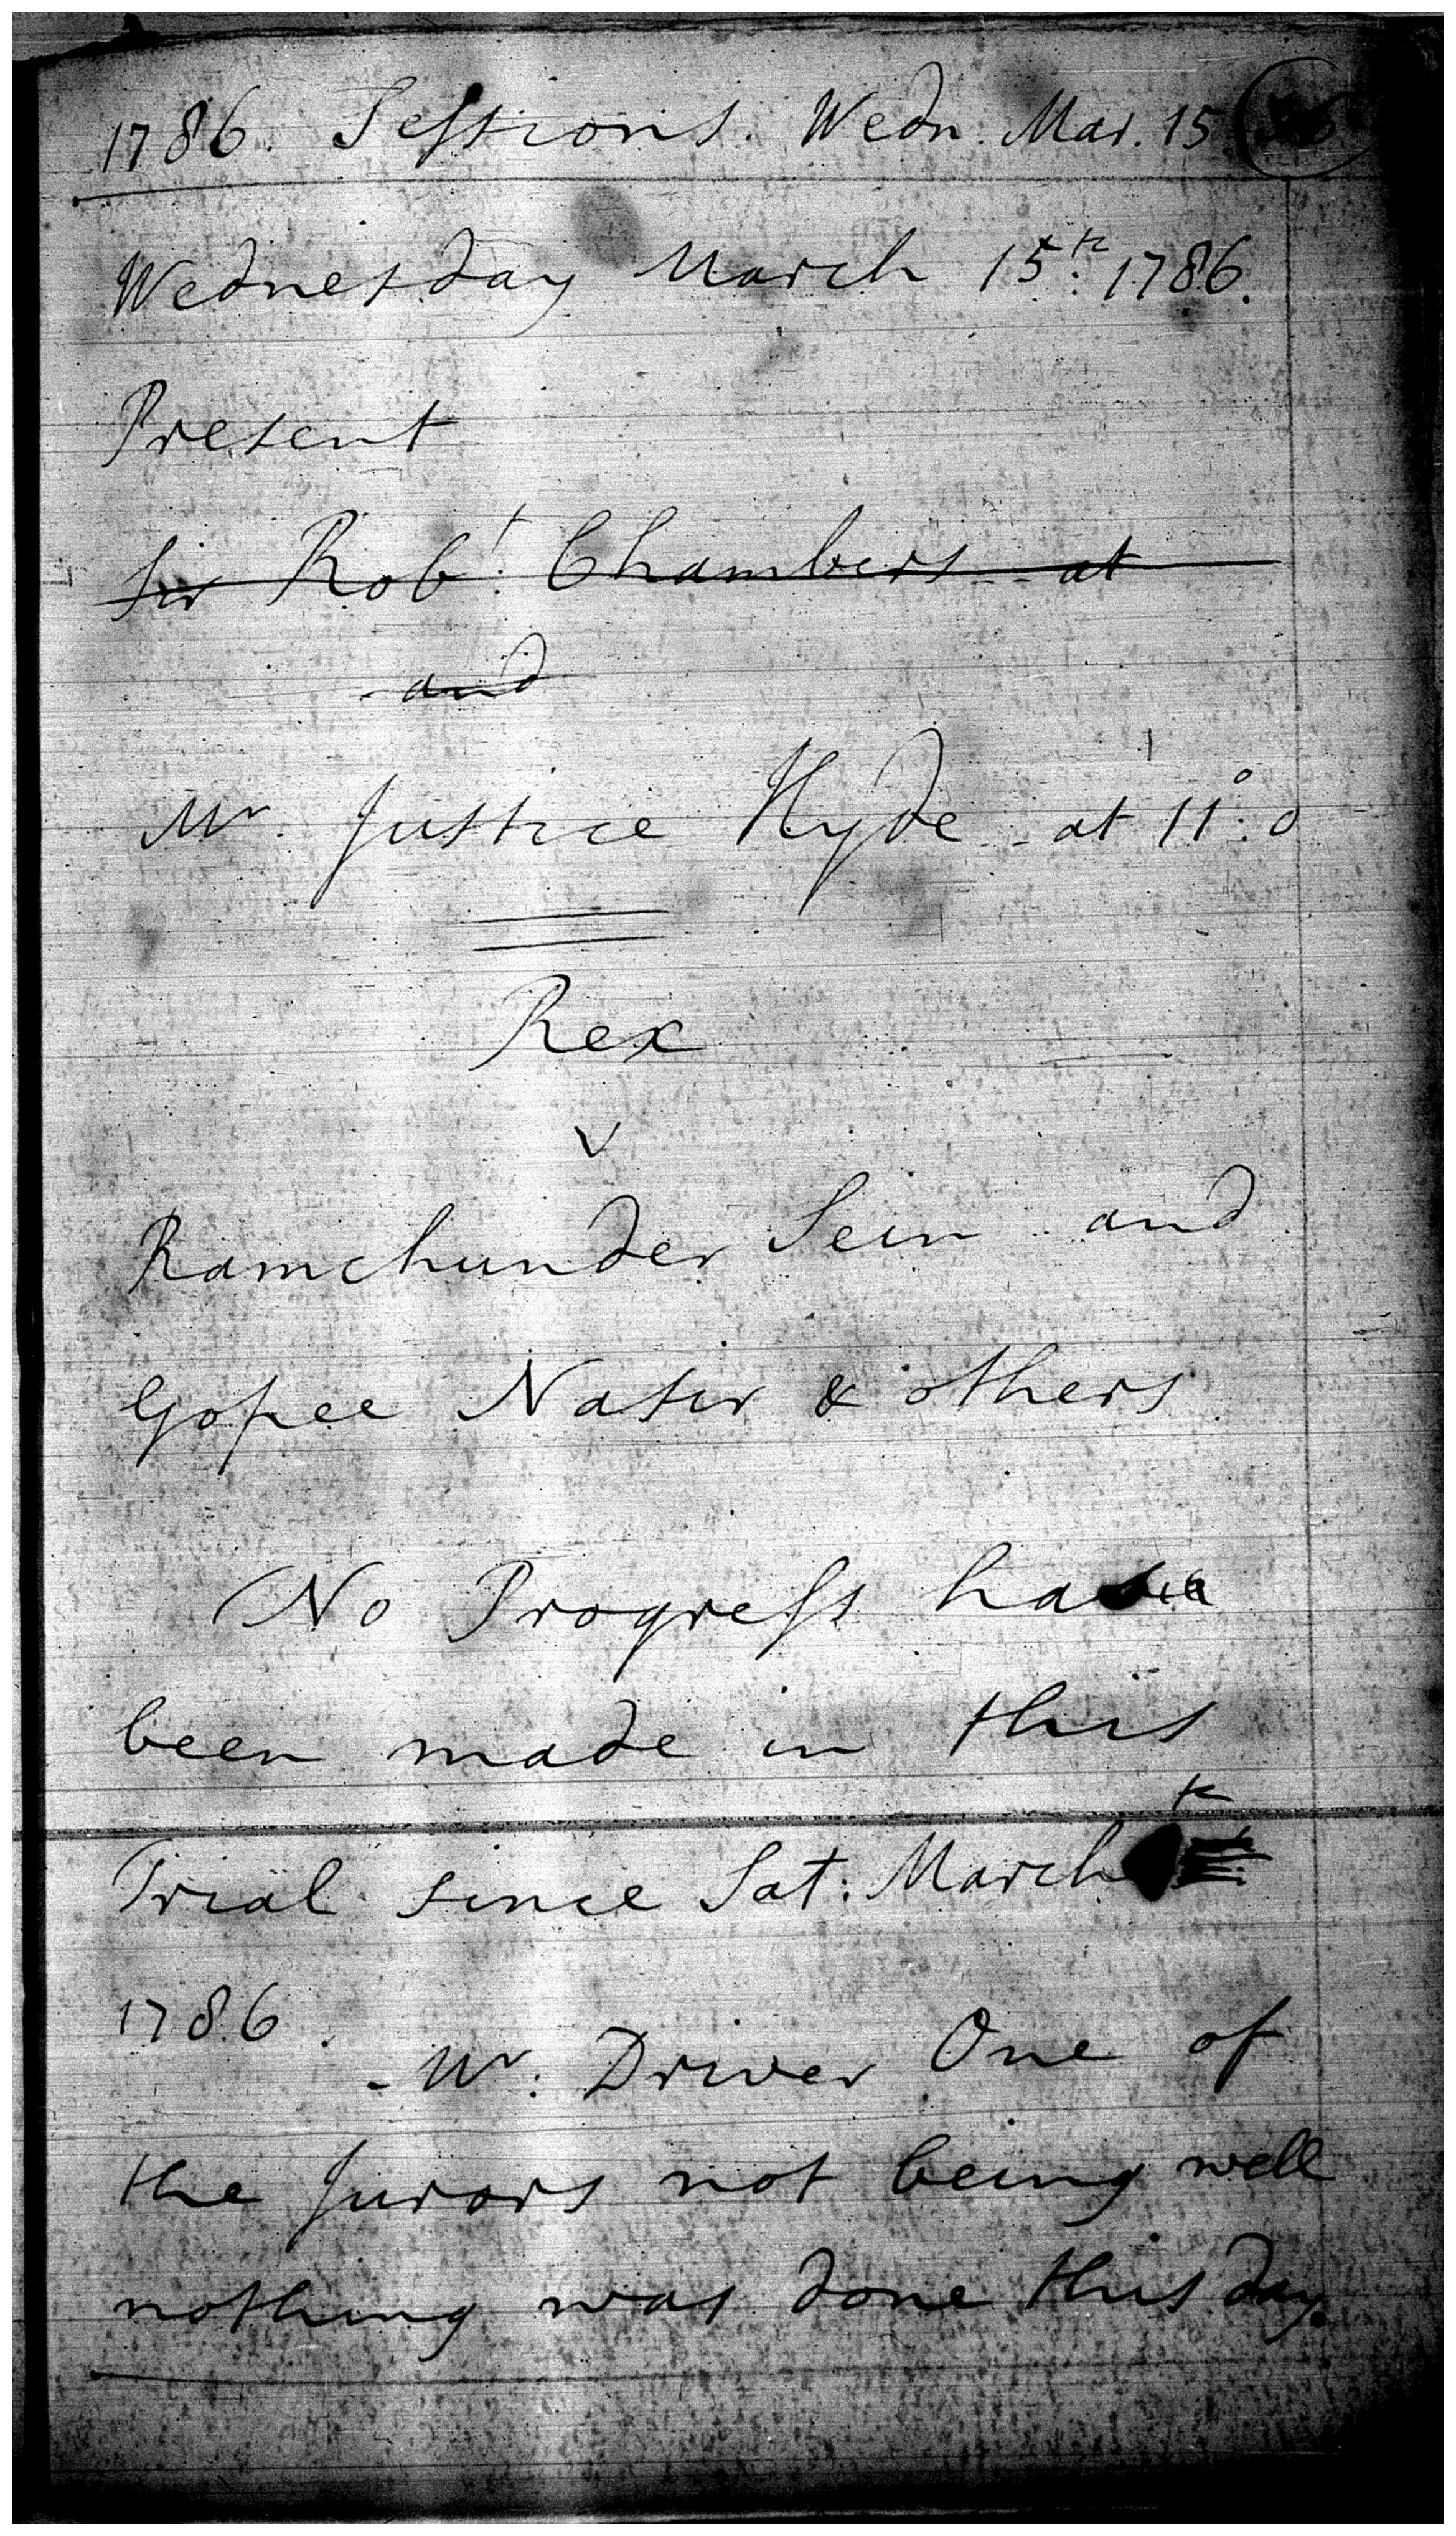 1786. Sessions. Wedn. Mar. 15
Wednesday March 15th. 1786.
Present
Sir Robt. Chambers at
and
Mr. Justice Hyde at 11°: 0
Rex
v
Ramchunder Sein and
Gopee Nasir & others
No Progress
been made in this
Trial since Sat: March
1786.
- Mr. Driver One of
the Jurors not being well
nothing was done this day.